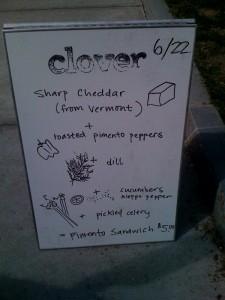 clover 6/22
Sharp Cheddar
(from Vermont)
+
toasted pimento peppers
+ dill
+ cucumbers
aleppo pepper
+ pickled celery
= Pimento Sandwich $5.00